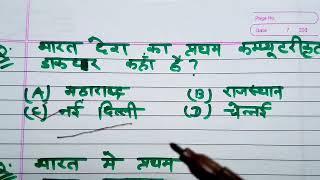 Page No.
Date
Q. भारत देश का प्रथम कम्प्यूटरीकृत
डाकघर कहाँ है?
(A) महाराष्ट्र (B) राजस्थान
(C) नई दिल्ली (D) चेन्नई
Q. भारत में प्रथम